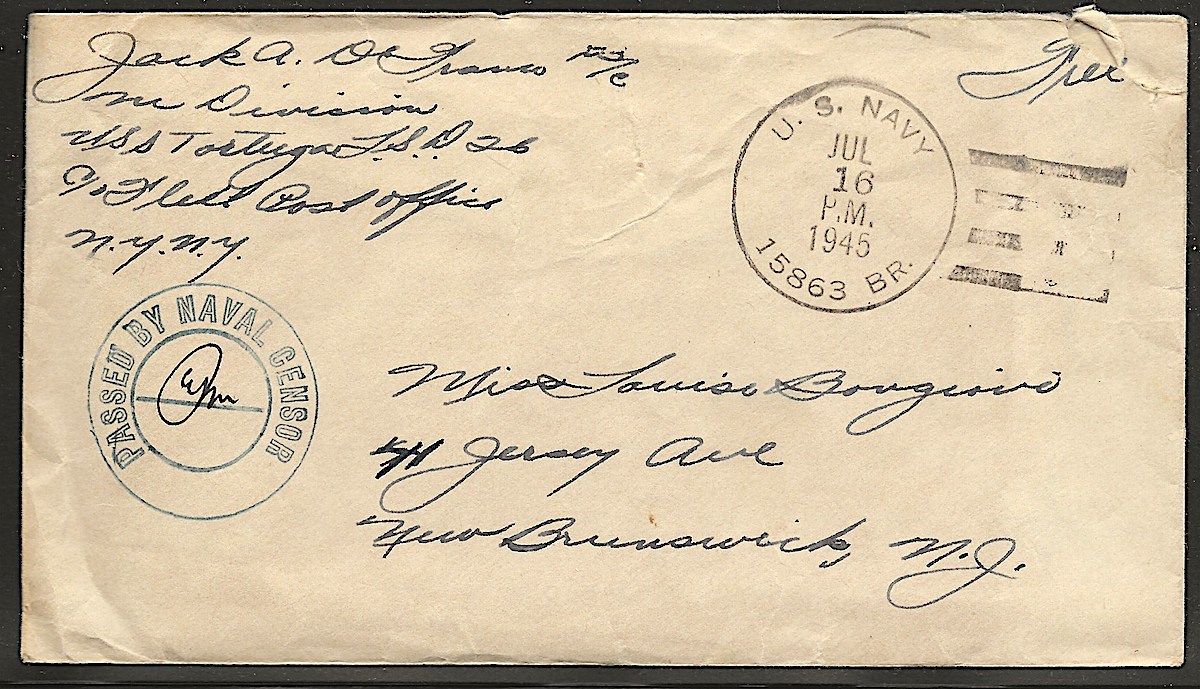 Jack A. De Franco F 2/c
"M" Division
USS Tortuga L.S.D 26
c/o Fleet Post Office
N.Y. N.Y.
Free
U. S. NAVY
JUL
16
P.M.
1945
15863 BR.
PASSED BY NAVAL CENSOR
Miss Louise Bongiovi
Jersey Ave
New Brunswick, N.J.